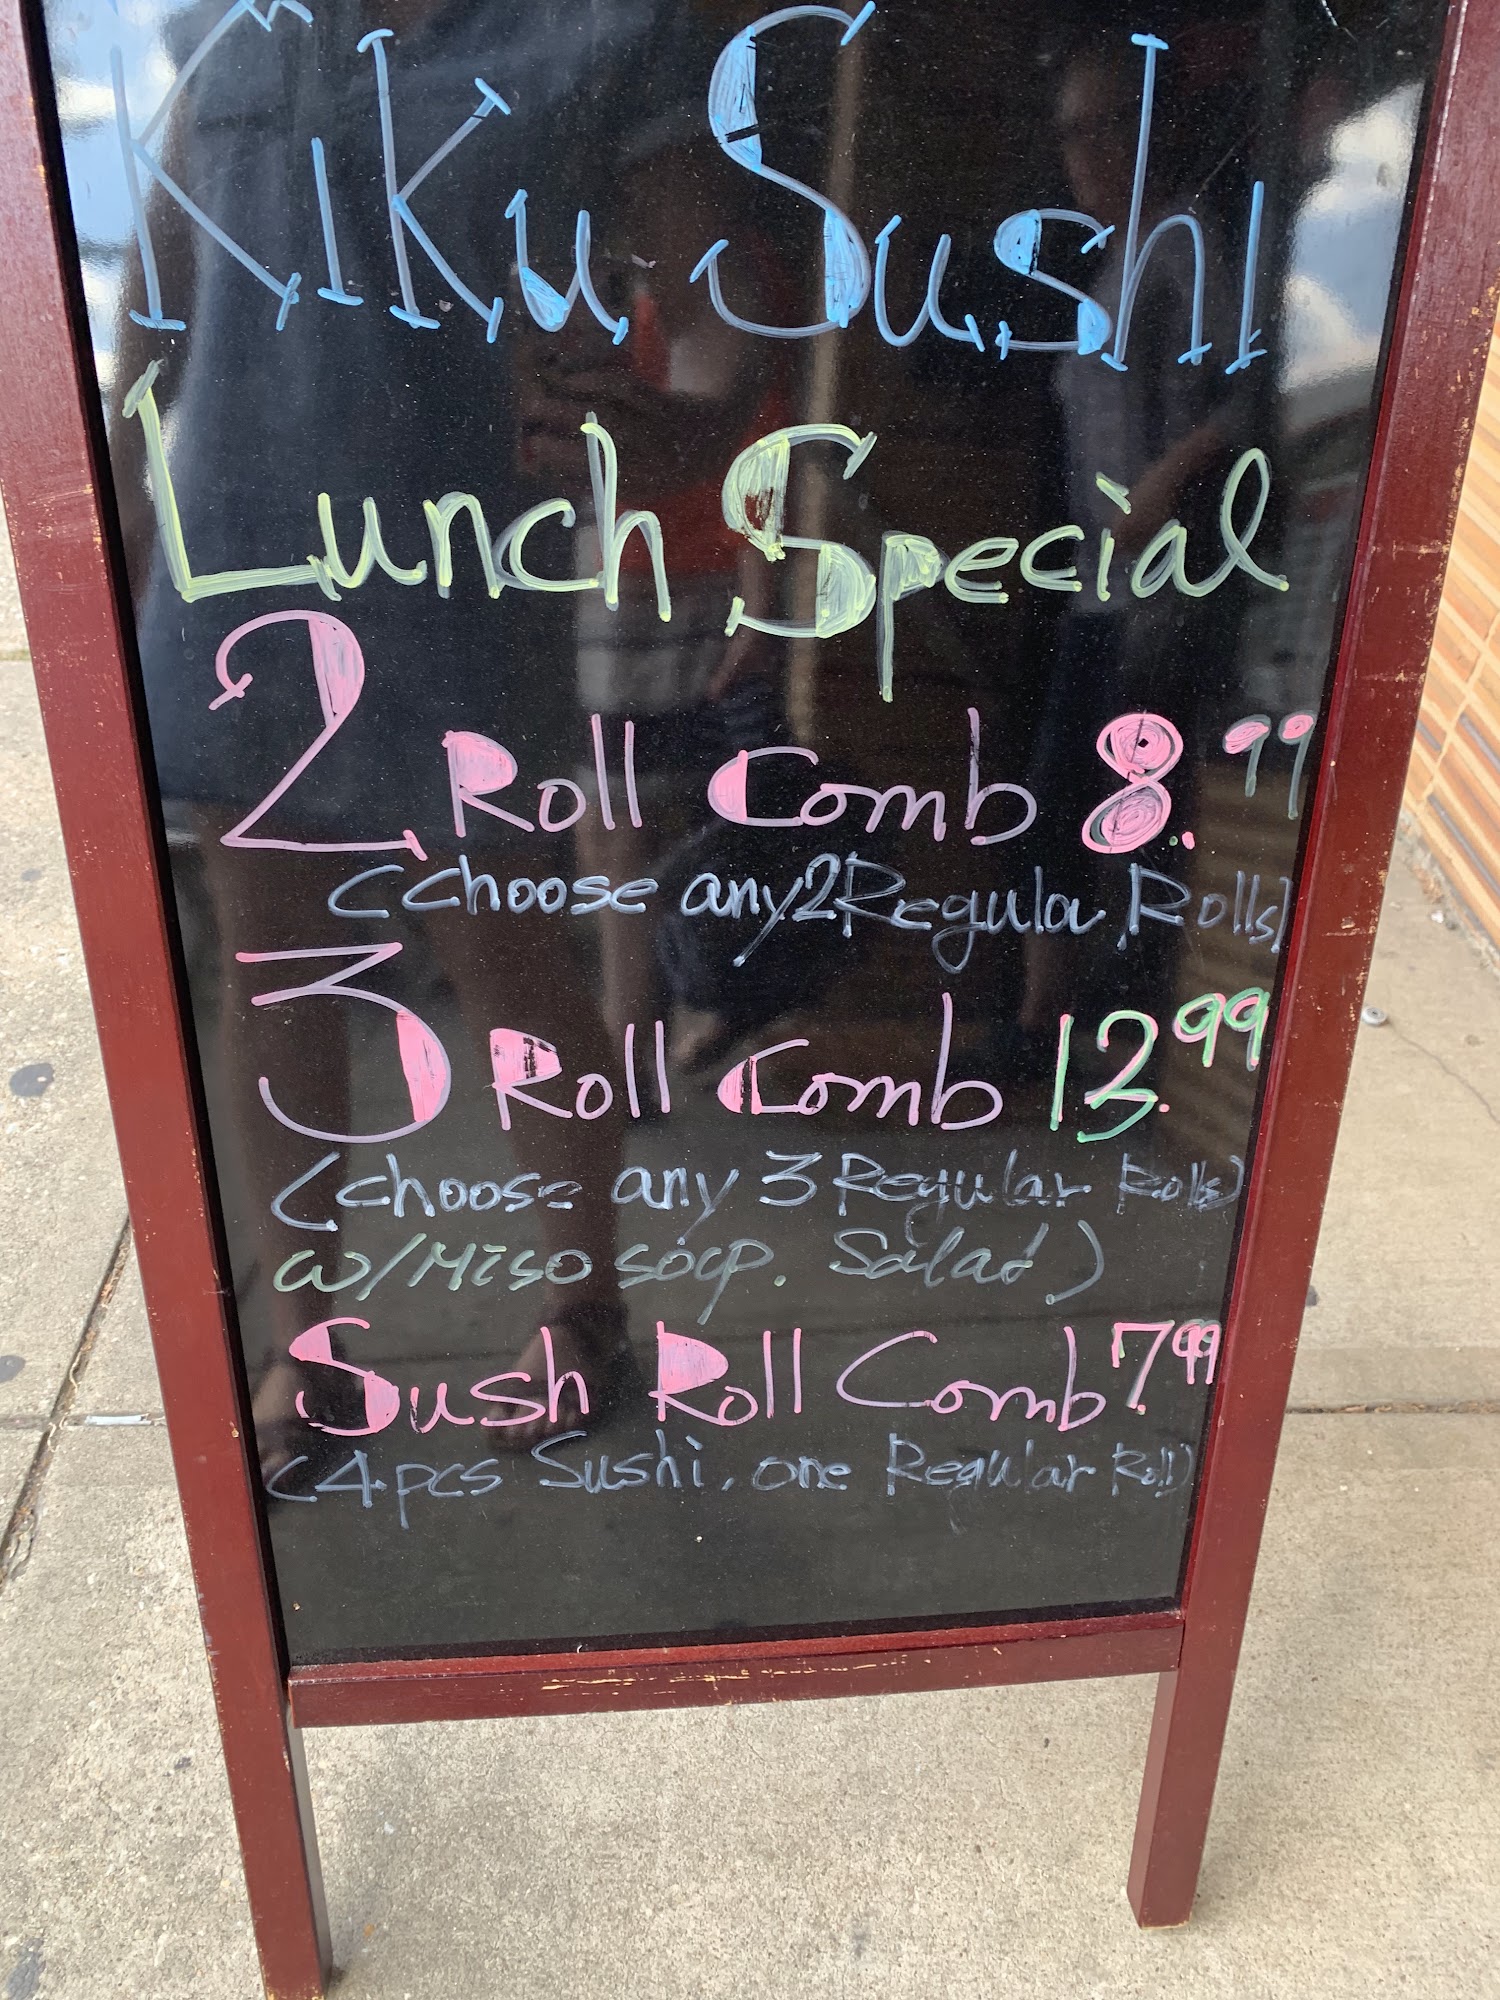 KiKu Sushi
Lunch Special
2 Roll Comb 8.99
(Choose any 2 Regular Rolls)
3 Roll Comb 13.99
(Choose any 3 Regular Rolls)
w/Miso soup. Salad)
Sush Roll Comb 7.99
(4.pcs Sushi, one Regular Roll)